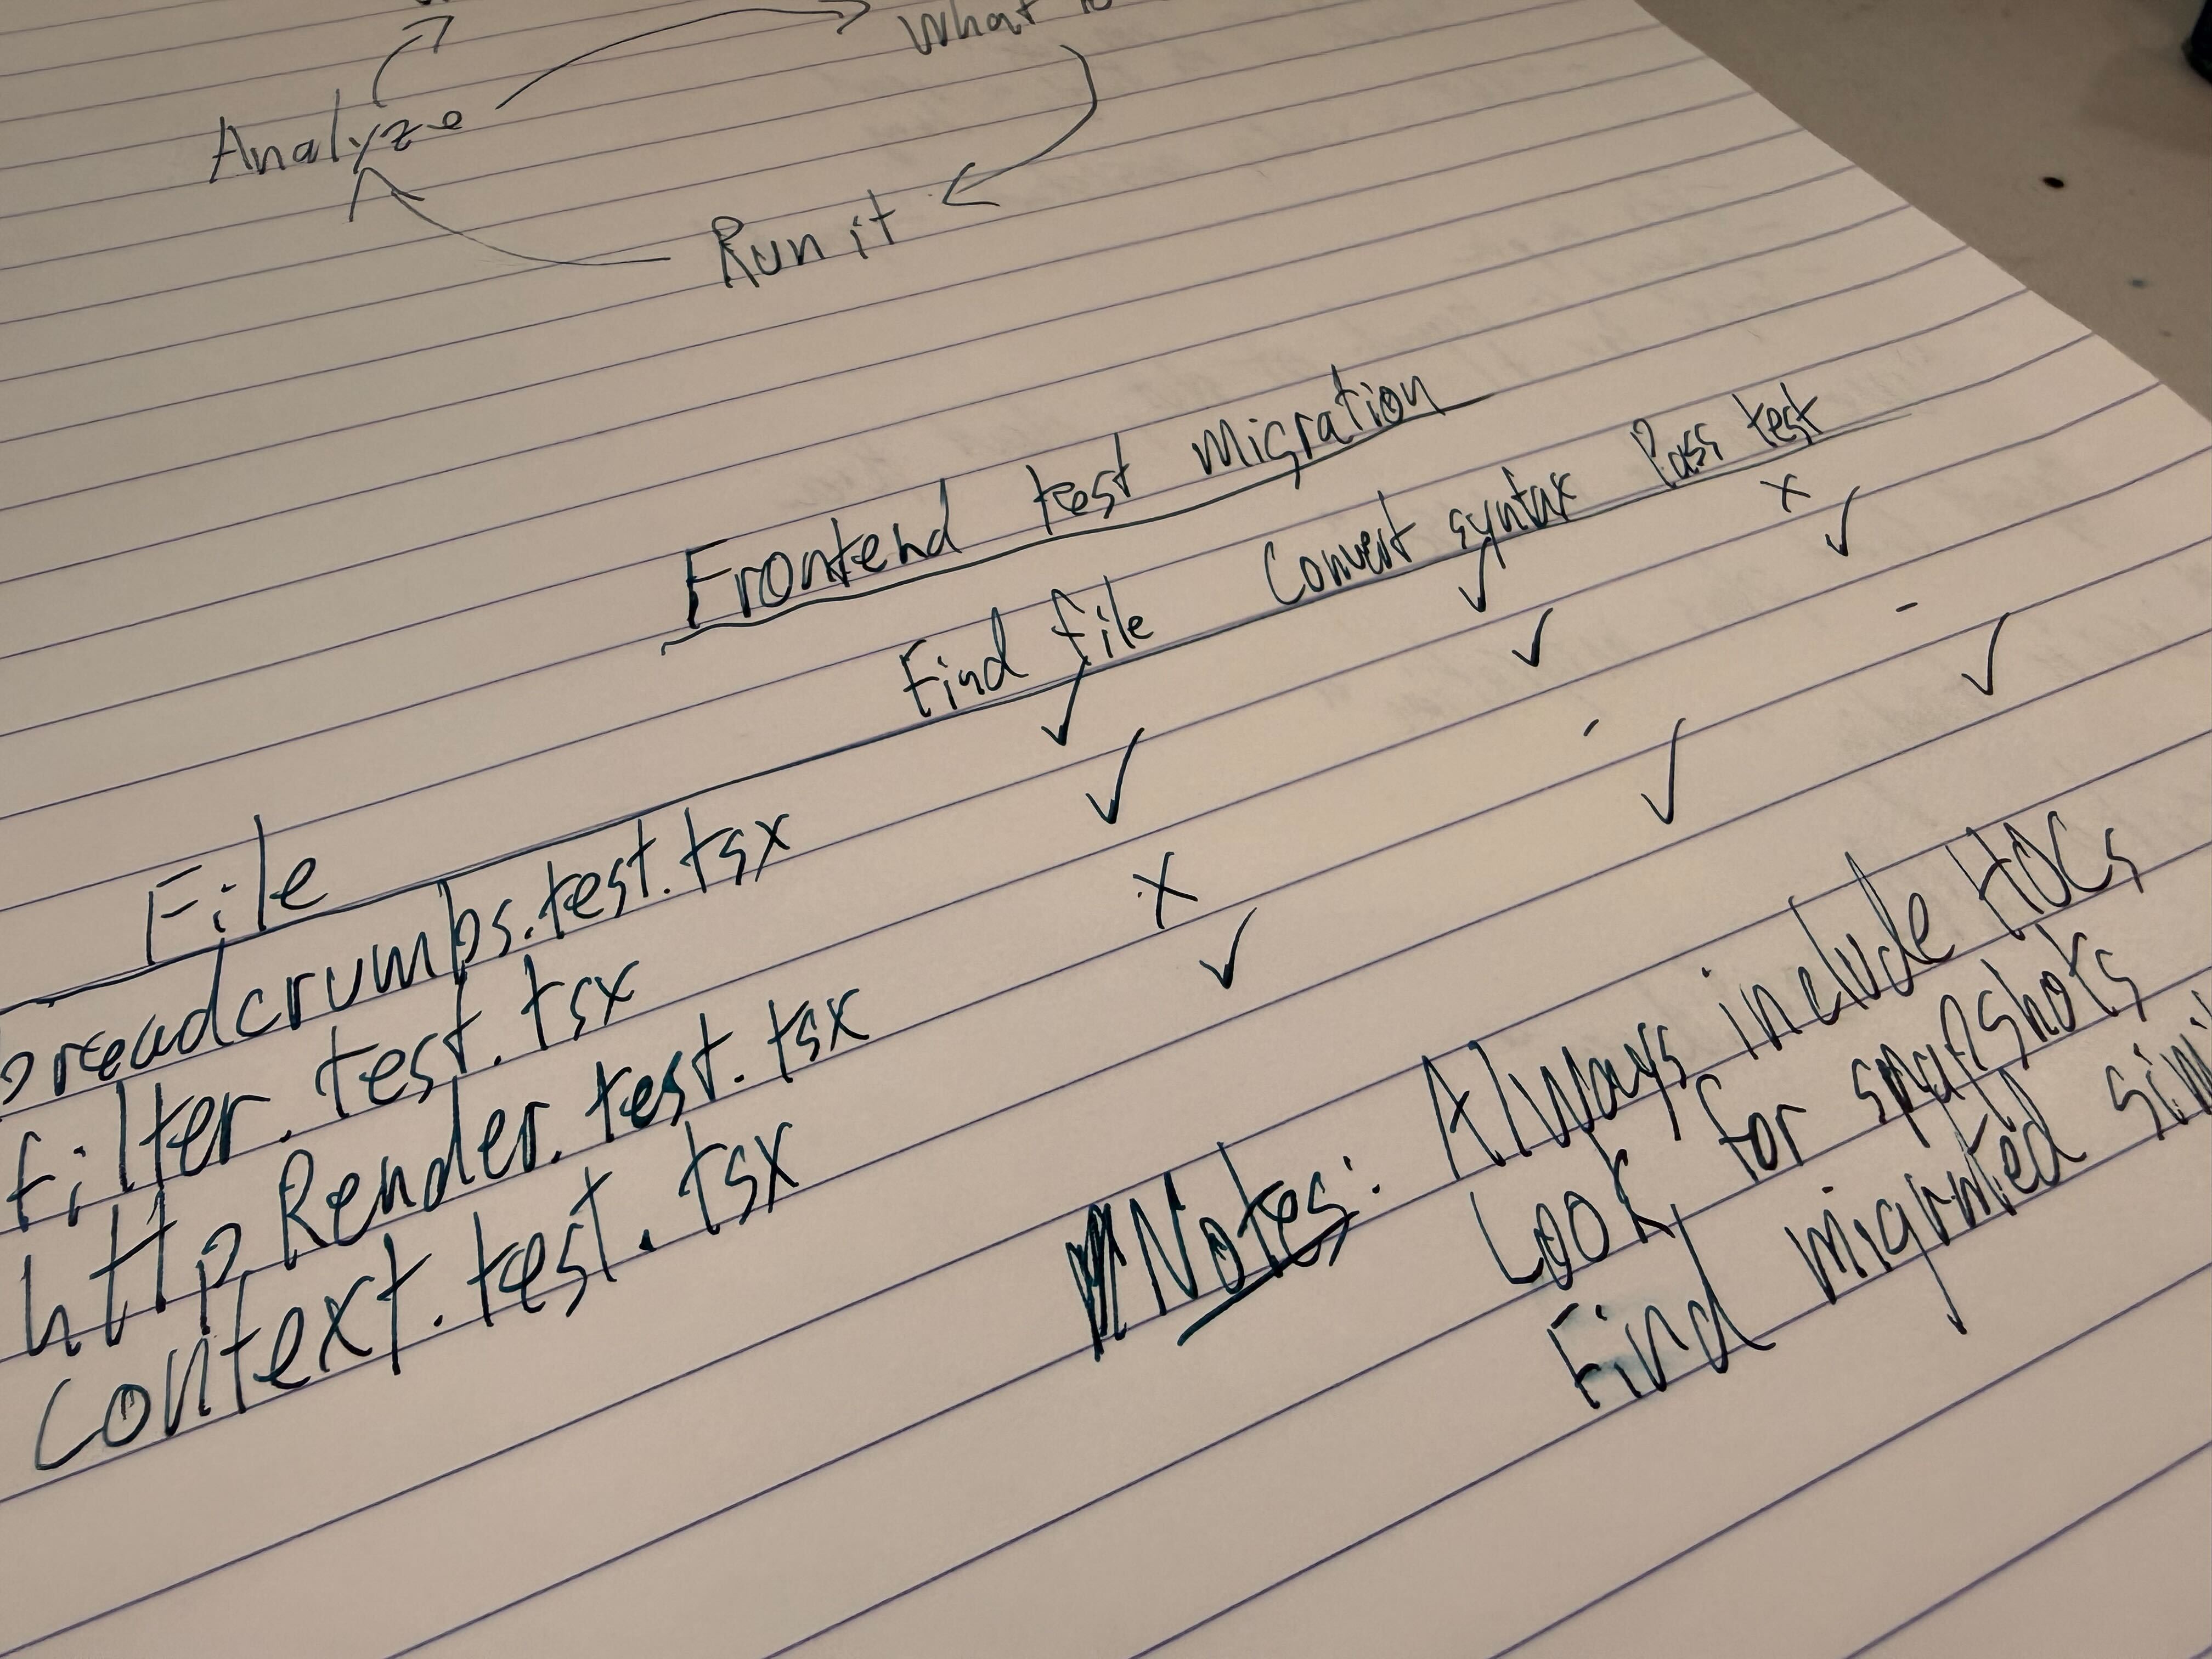 What
Analyze
Run it
Frontend test migration
File Find file Convert syntax Pass test
breadcrumbs.test.tsx ✓ ✓ x
filter.test.tsx ✓ ✓ ✓
httpRender.test.tsx x - -
context.test.tsx ✓ ✓ ✓
Notes: Always include HOCs
Look for snapshots
Find migrated